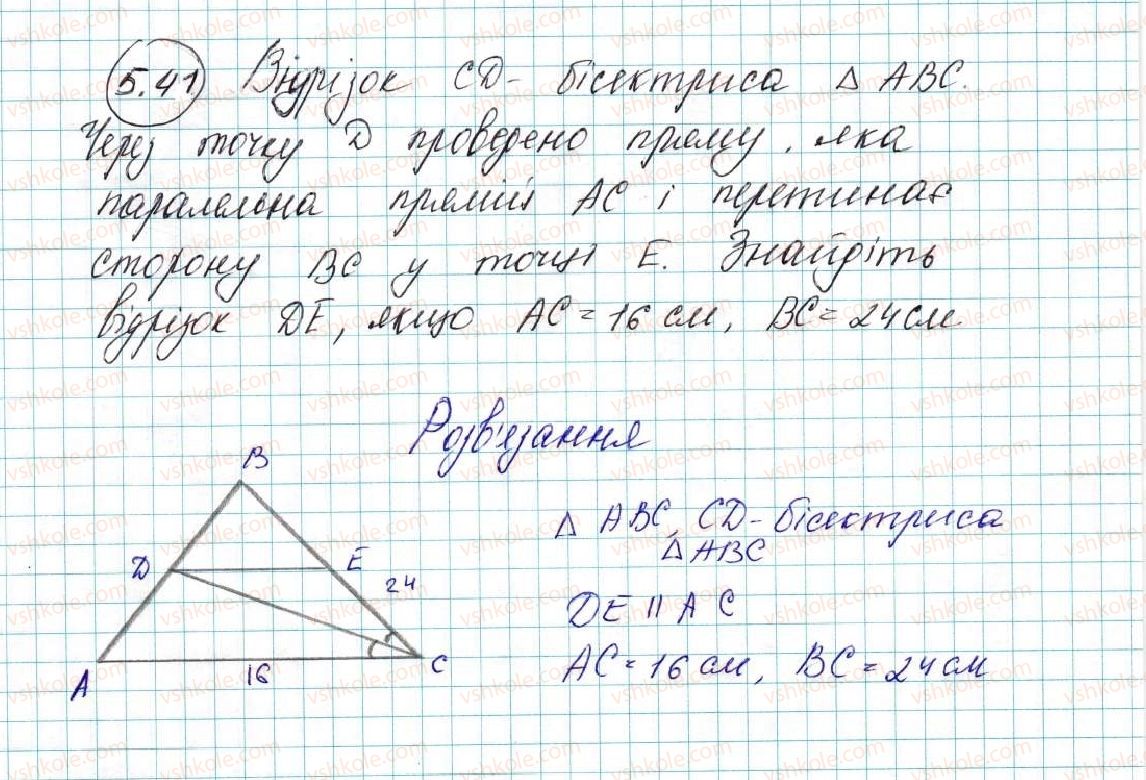 5.41 Відрізок CD - бісектриса △ ABC.
Через точку D проведено пряму, яка
паралельна прямій AC і перетинає
сторону BC у точці E. Знайдіть
відрізок DE, якщо AC = 16 см, BC = 24 см.
Розв'язання
B
△ ABC, CD - бісектриса
△ ABC
D
E
24
DE || AC
AC = 16 см, BC = 24 см
A
16
C
vshkole.com